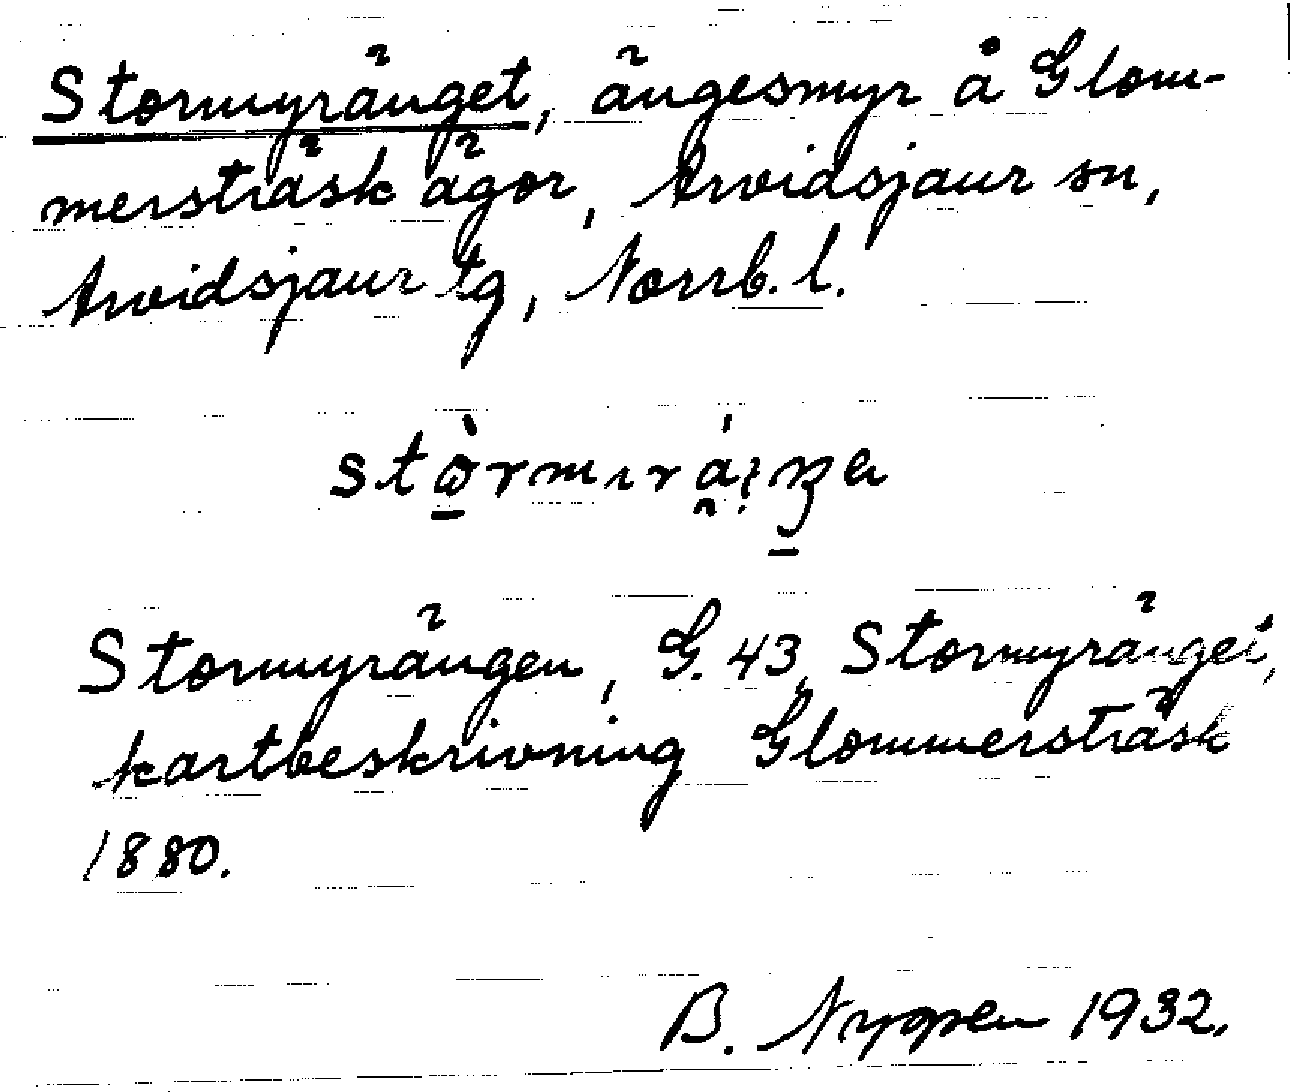 Stormyränget, ängesmyr å Glom-
mersträsk ägor, Arvidsjaur sn,
Arvidsjaur tg, Norrb. l.
Stormyrängen, G. 43, Stormyränget,
kartbeskrivning Glommersträsk
1880.
B. Nygren 1932.